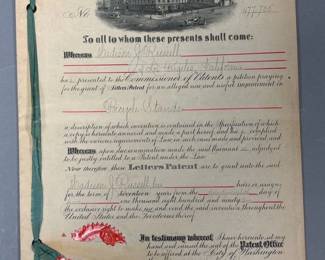 No
477,725
To all to whom these presents shall come:
Whereas
Los Angeles, California
has presented to the Commissioner of Patents a petition praying
for the grant of Letters Patent for an alleged new and useful improvement in
Bicycle Stands
a description of which invention is contained in the Specification of which
a copy is hereunto annexed and made a part hereof, and has complied
with the various requirements of Law in such cases made and provided, and
Whereas upon due examination made the said Claimant is adjudged
to be justly entitled to a Patent under the Law.
Now therefore these Letters Patent are to grant unto the said
his heirs or assigns
for the term of Seventeen years from the day of
one thousand eight hundred and ninety
the exclusive right to make, use and vend the said invention throughout the
United States and the Territories thereof.
In testimony whereof, I have hereunto set my
hand and caused the seal of the Patent Office
to be affixed at the City of Washington